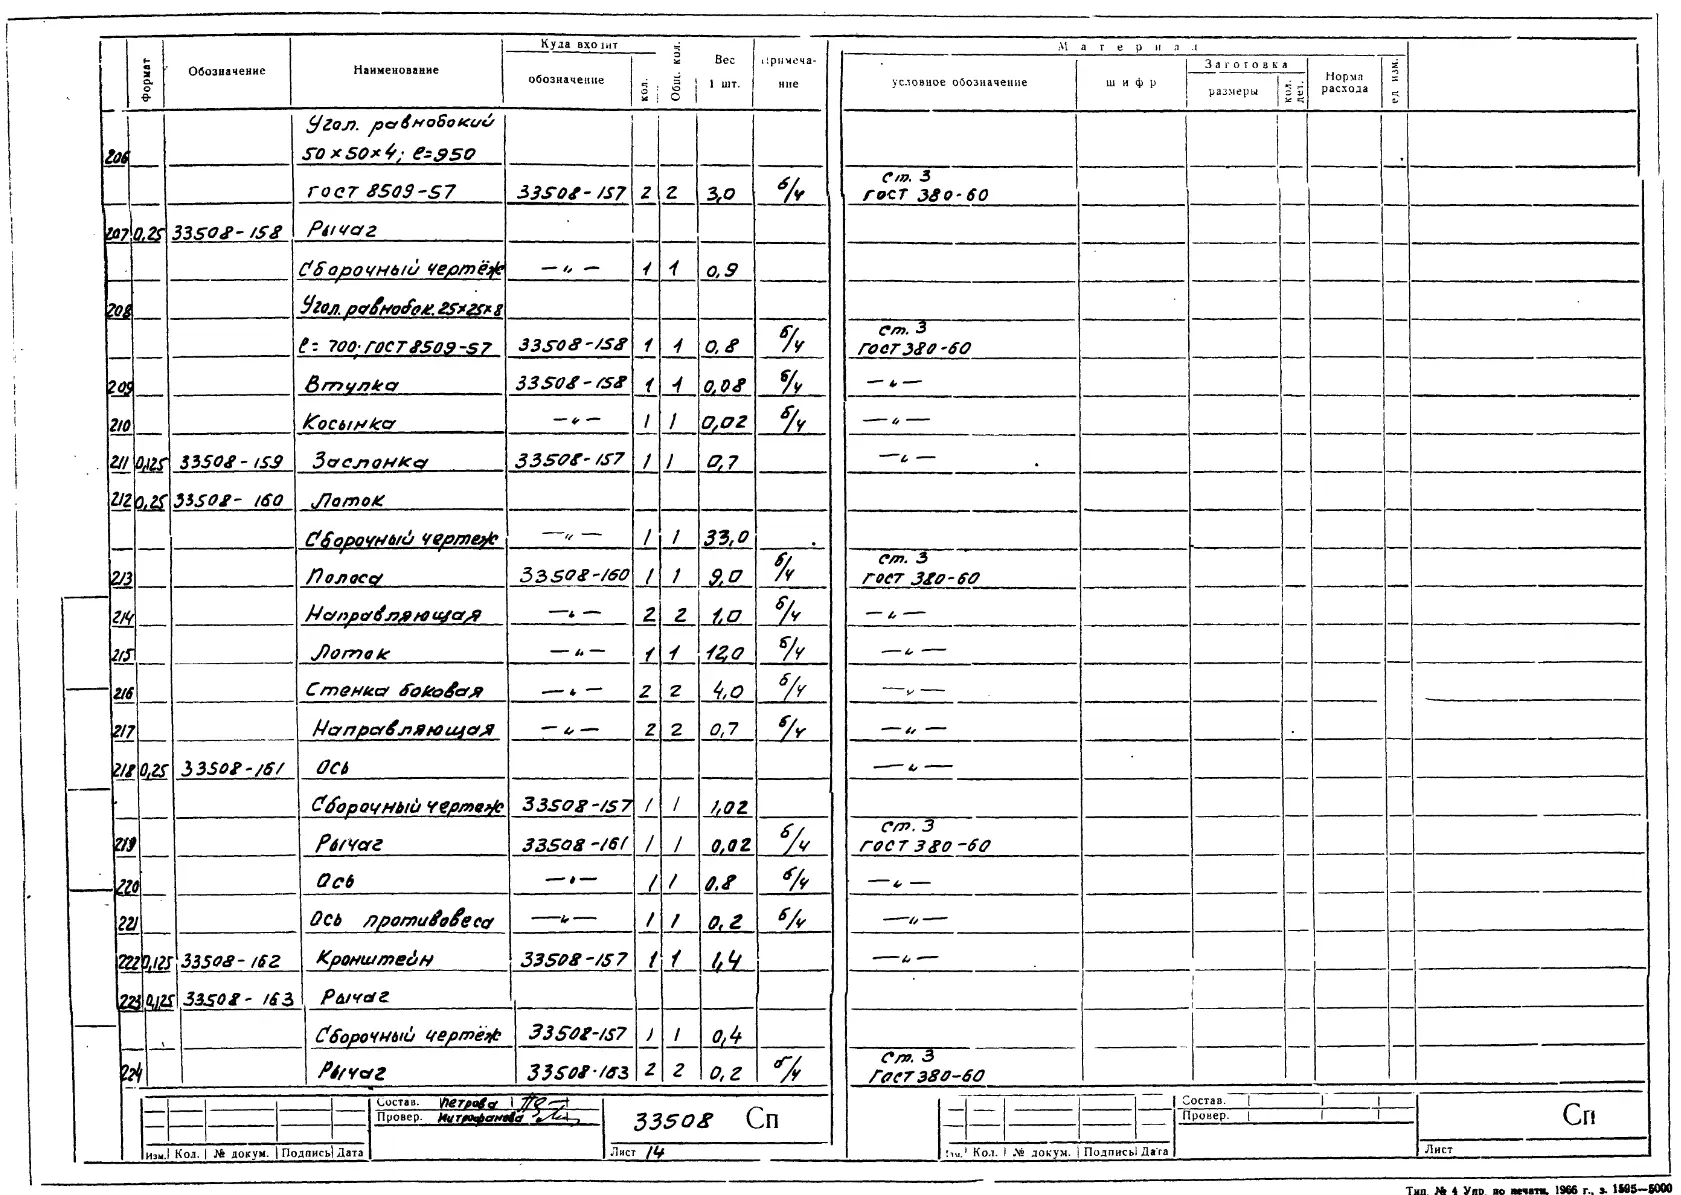 Формат Обозначение Наименование Куда входит обозначение кол. Общ. кол. Вес 1 шт. Примеча-ние Материал условное обозначение шифр Заготовка размеры кол. дет. Норма расхода ед. изм.
Угол. равнобокий
206 50×50×4; ℓ=950
гост 8509-57 33508-157 2 2 3,0 б/ч Ст. 3 гост 380-60
207 0,25 33508-158 Рычаг
Сборочный чертёж —〃— 1 1 0,9
208 Угол. равнобок. 25×25×8
ℓ= 700; гост 8509-57 33508-158 1 1 0,8 б/ч Ст. 3 гост 380-60
209 Втулка 33508-158 1 1 0,08 б/ч —〃—
210 Косынка —〃— 1 1 0,02 б/ч —〃—
211 0,125 33508-159 Заслонка 33508-157 1 1 0,7 —〃—
212 0,25 33508-160 Лоток
Сборочный чертеж —〃— 1 1 33,0
213 Полоса 33508-160 1 1 9,0 б/ч Ст. 3 гост 380-60
214 Направляющая —〃— 2 2 1,0 б/ч —〃—
215 Лоток —〃— 1 1 12,0 б/ч —〃—
216 Стенка боковая —〃— 2 2 4,0 б/ч —〃—
217 Направляющая —〃— 2 2 0,7 б/ч —〃—
218 0,25 33508-161 Ось —〃—
Сборочный чертеж 33508-157 1 1 1,02
219 Рычаг 33508-161 1 1 0,02 б/ч Ст. 3 гост 380-60
220 Ось —〃— 1 1 0,8 б/ч —〃—
221 Ось противовеса —〃— 1 1 0,2 б/ч —〃—
222 0,125 33508-162 Кронштейн 33508-157 1 1 1,4 —〃—
223 0,125 33508-163 Рычаг
Сборочный чертёж 33508-157 1 1 0,4
224 Рычаг 33508-163 2 2 0,2 б/ч Ст. 3 гост 380-60
Состав. Петрова
Провер. Митрофанова
33508 Сп
Изм. Кол. № докум. Подпись Дата Лист 14
Состав.
Провер.
Сп
Изм. Кол. № докум. Подпись Дата Лист
Тип. № 4 Упр. по печати, 1966 г., з. 1595—5000